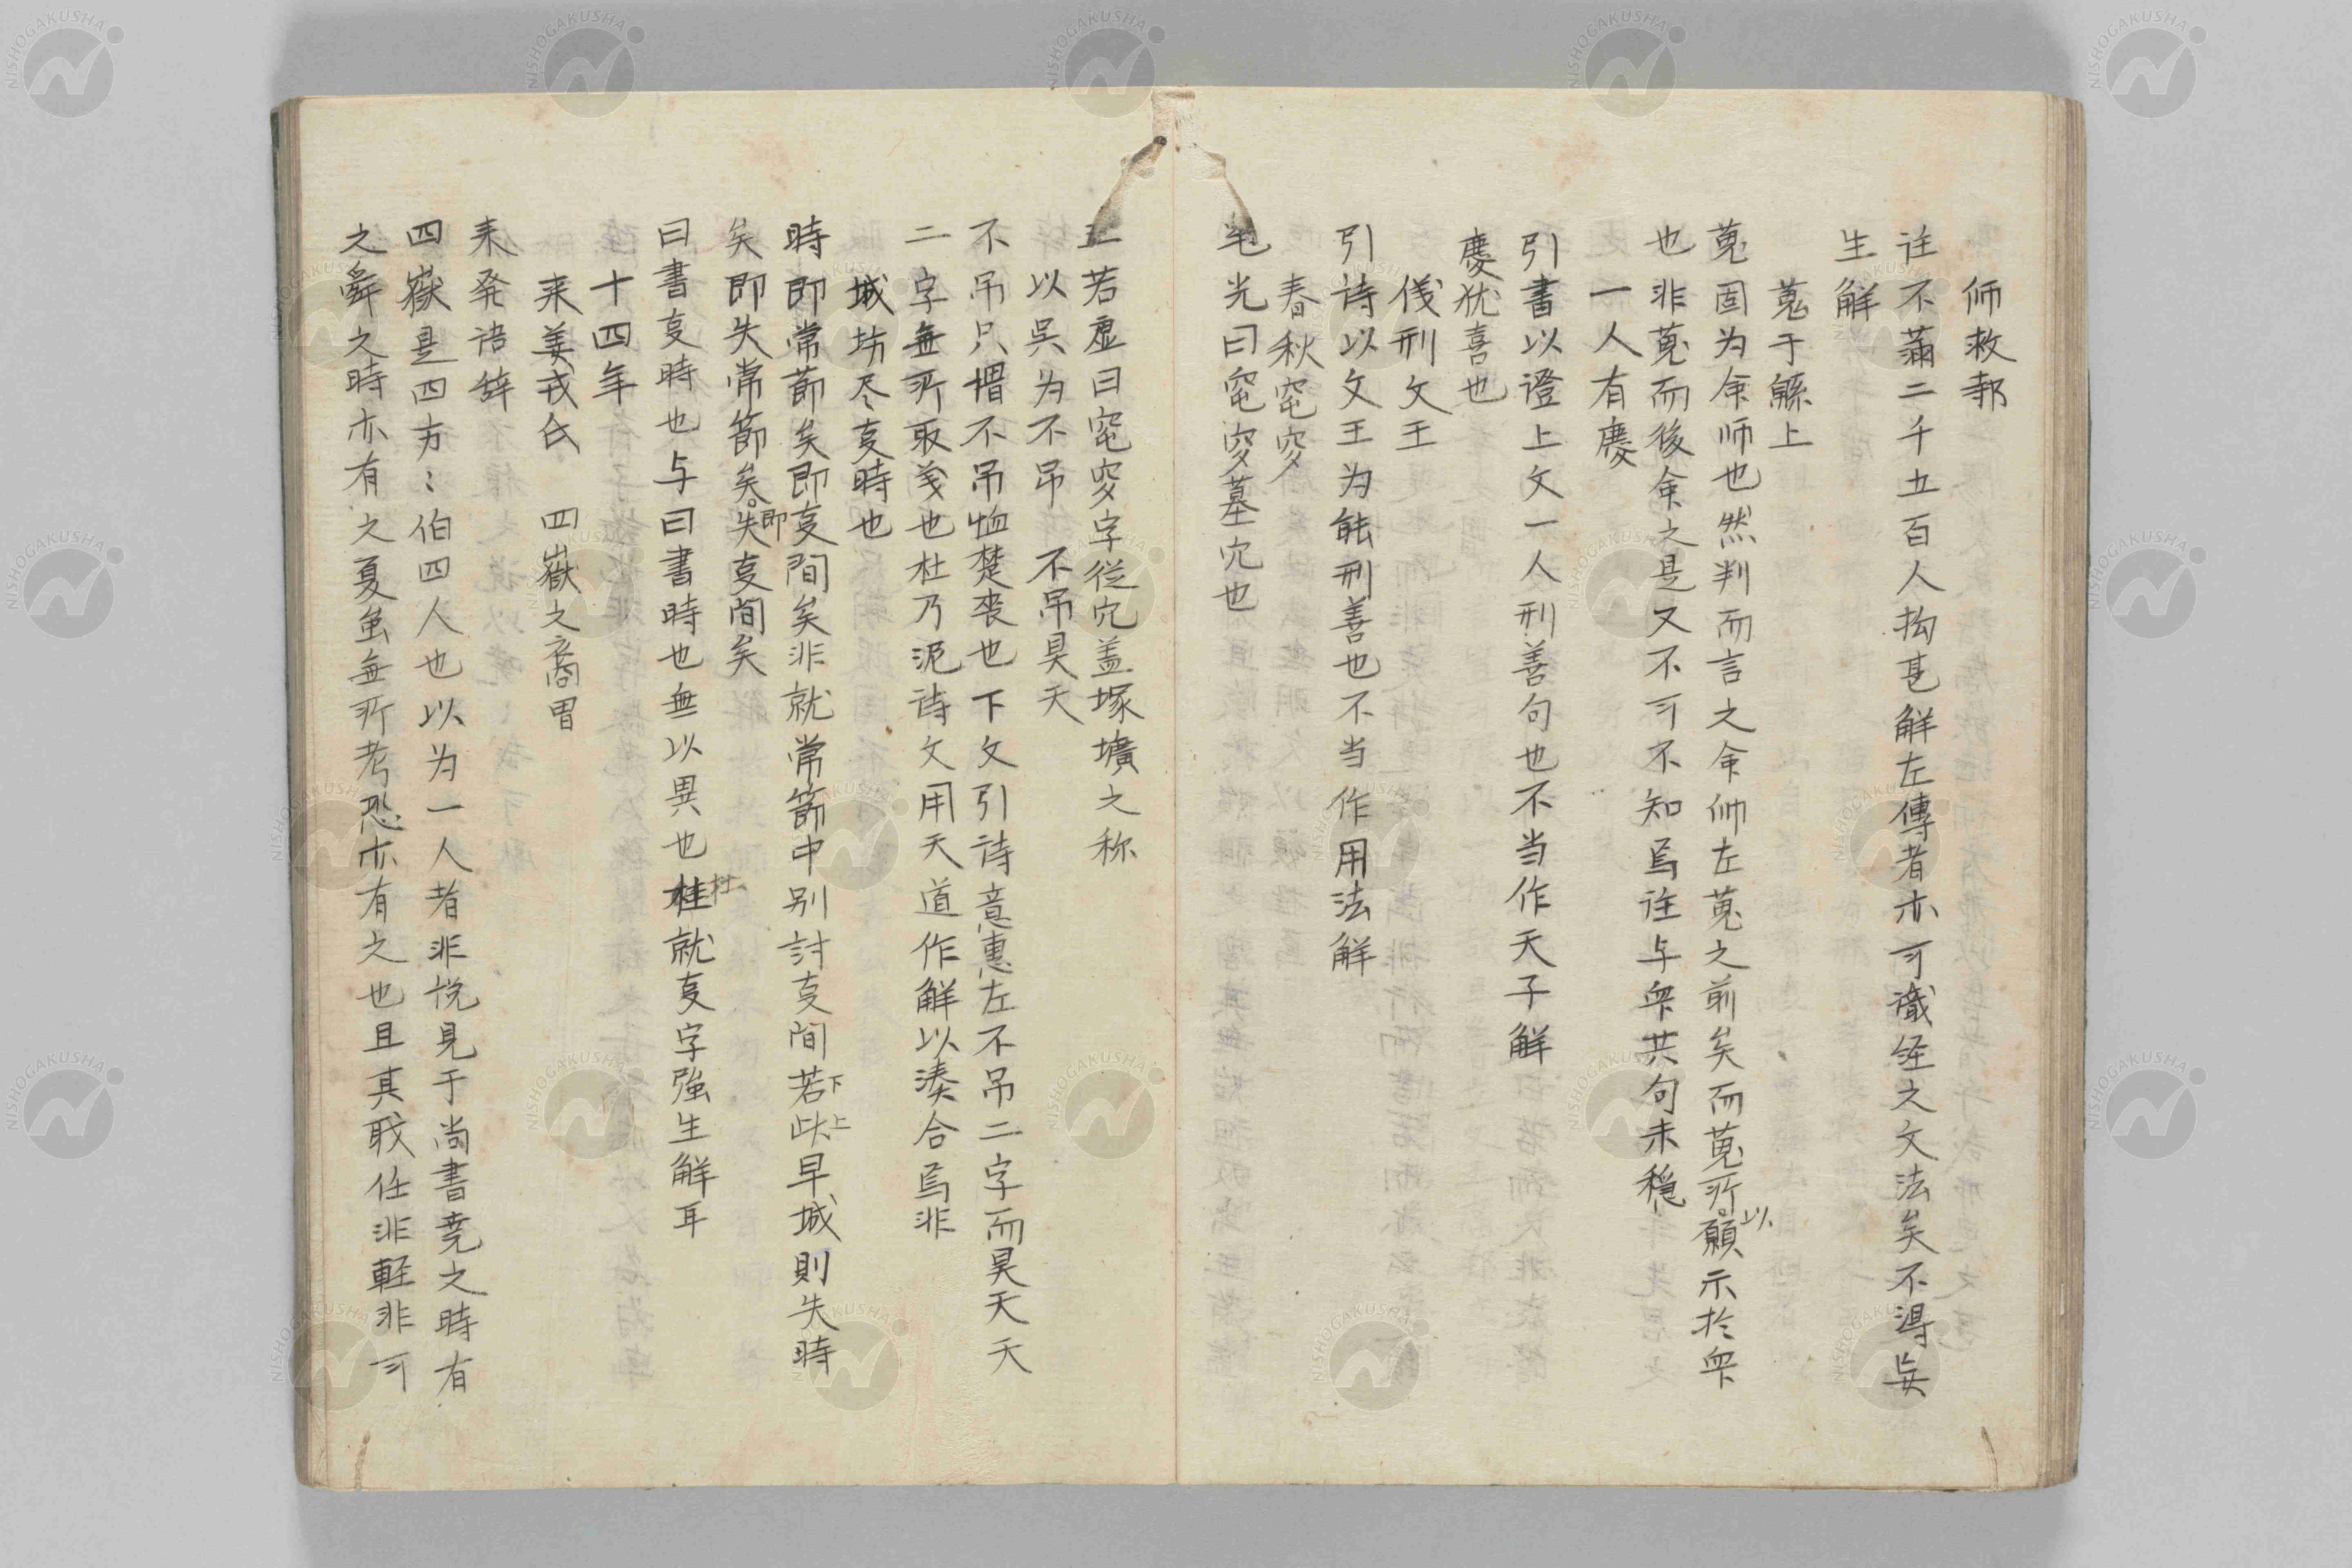 師救邾
註不滿二千五百人拘甚解左傳者亦可識経之文法矣不得妄
生解
蒐于緜上
蒐固为命师也然判而言之命帥左蒐之前矣而蒐所以願示於衆
也非蒐而後命之是又不可不知焉註与衆共句未穏
一人有慶
慶犹喜也
引書以證上文一人刑善句也不当作天子解
儀刑文王
引诗以文王为能刑善也不当作用法解
春秋窀穸
毛光曰窀穸墓穴也
王若虚曰窀穸字從穴盖塚壙之称
以呉为不吊　不吊昊天
不吊只謂不吊恤楚丧也下文引诗意惠左不吊二字而昊天天
二字無所取義也杜乃泥诗文用天道作解以湊合焉非
城坊尽叓時也
時即常節矣即叓間矣非就常節中別討叓間若下此上早城則失時
矣即失常節矣即失叓間矣
曰書叓時也与曰書時也無以異也桂杜就叓字強生解耳
十四年
来姜戎氏　四嶽之裔冑
来発语辞
四嶽是四方〻伯四人也以为一人者非说見于尚書尭之時有
之舜之時亦有之夏虽無所考恐亦有之也且其職任非軽非可